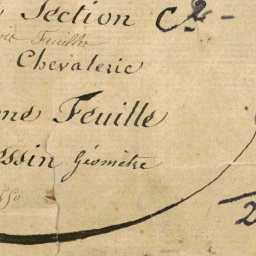 Section C
Feuille
Chevalerie
me Feuille
ssin Géomètre
2